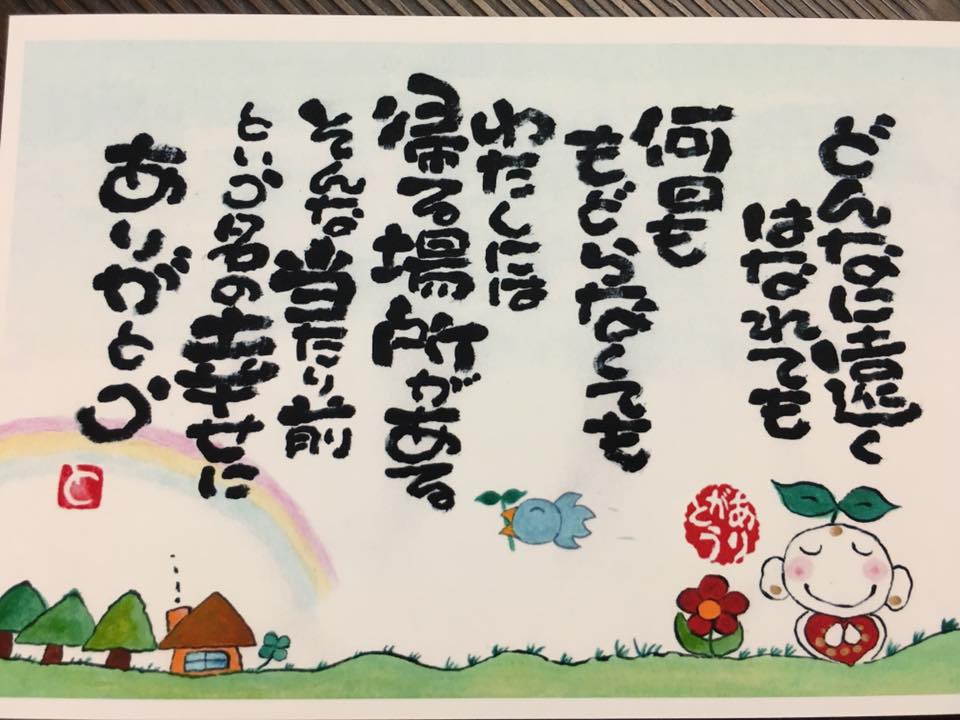 どんなに遠く
はなれても
何回も
もどらなくても
わたしには
帰る場所がある
そんな当たり前
という名の幸せに
ありがとう
ありがとう
と